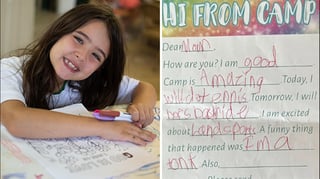 HI FROM CAMP
Dear Noun.
How are you? I am good
Camp is amazing. Today, I
will do tennis Tomorrow, I will
horse back ride. I am excited
about Land sports. A funny thing
that happened was I'm a
tonk Also,
Please send